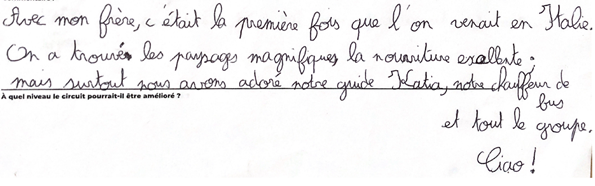 Avec mon frère, c'était la première fois que l'on venait en Italie.
On a trouvés les paysages magnifiques la nourriture exellente ;
mais surtout nous avons adoré notre guide Katia, notre chauffeur de
À quel niveau le circuit pourrait-il être amélioré ?
bus
et tout le groupe.
Ciao !